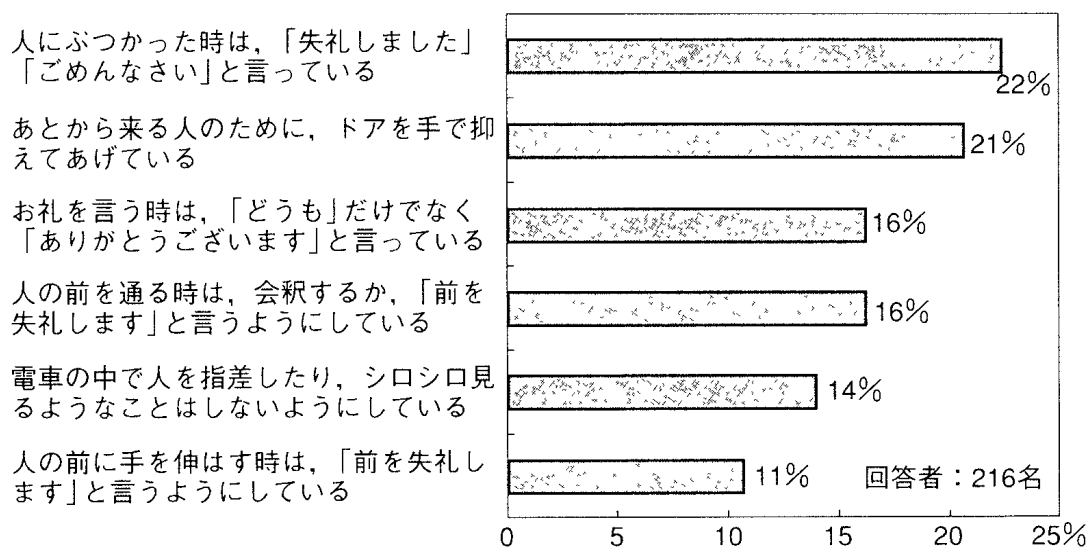 人にぶつかった時は，「失礼しました」
「ごめんなさい」と言っている
22%
あとから来る人のために，ドアを手で抑
えてあげている
21%
お礼を言う時は，「どうも」だけでなく
「ありがとうございます」と言っている
16%
人の前を通る時は，会釈するか，「前を
失礼します」と言うようにしている
16%
電車の中で人を指差したり，シロシロ見
るようなことはしないようにしている
14%
人の前に手を伸はす時は，「前を失礼し
ます」と言うようにしている
11%
回答者：216名
0 5 10 15 20 25%